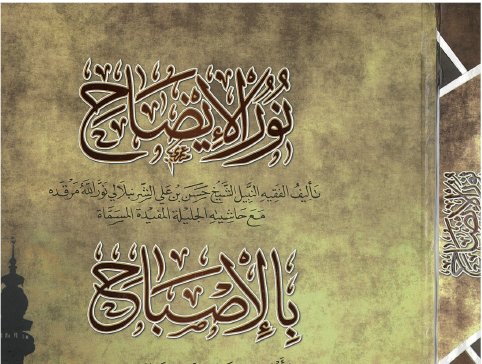 نُورُ الْإِيضَاحِ
تَأليفُ الفَقِيهِ النَّبِيلِ الشَّيْخِ حَسَن بْن عَلي الشُّرُنْبُلَالِي نَوَّرَ اللهُ مَرْقَدَه
مَعَ حَاشِيَتِهِ الجَلِيلَةِ المُفِيدَةِ المُسَمَّاة
بِالْإِصْبَاحِ
نور الإيضاح